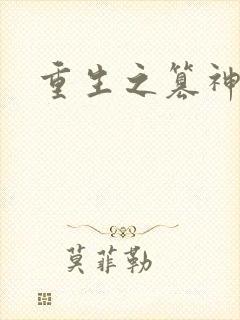 重生之篡神
莫菲勒